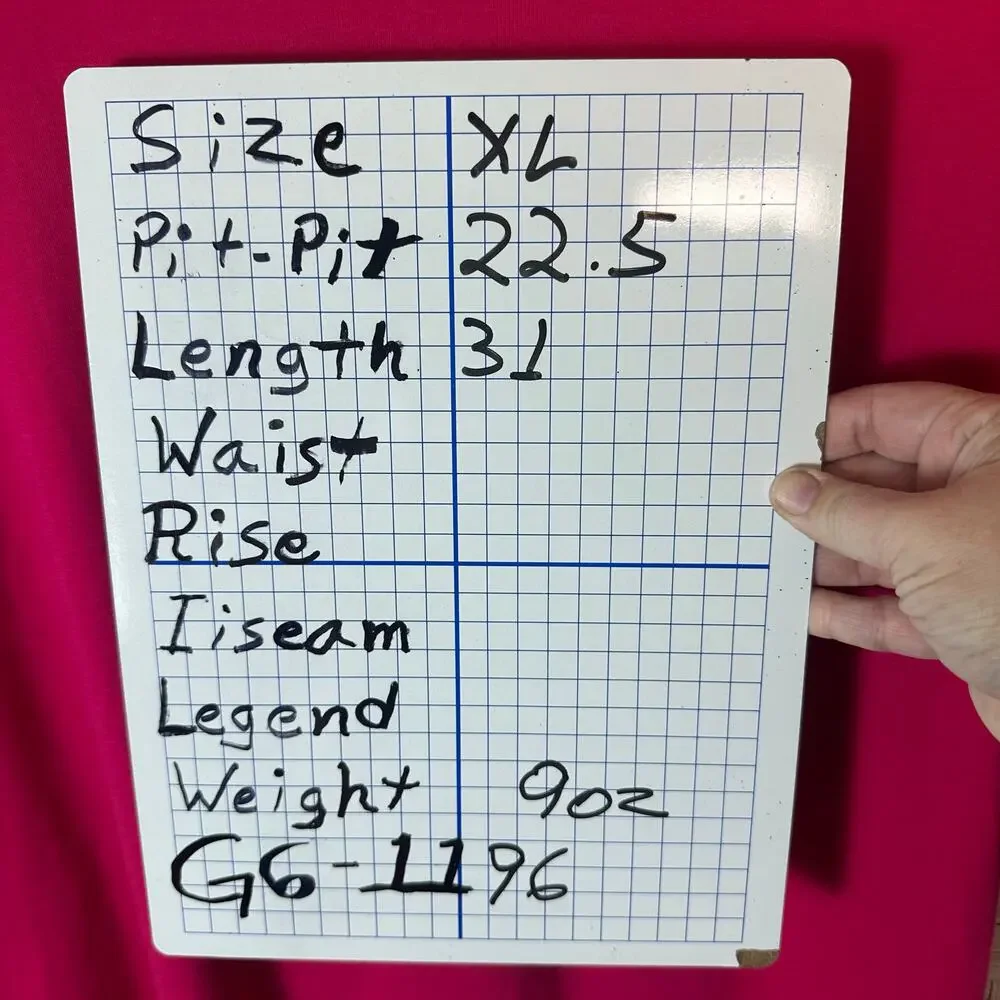 Size XL
Pit-Pit 22.5
Length 31
Waist
Rise
Iiseam
Legend
Weight 9oz
G6-1196